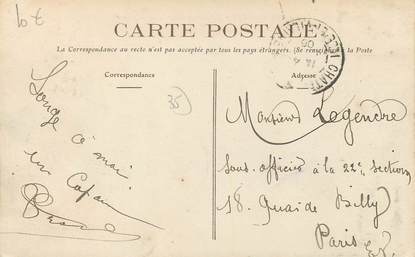 CARTE POSTALE
La Correspondance au recto n'est pas acceptée par tous les pays étrangers. (Se renseigner à la Poste
Correspondance
Adresse
35
Songe
à moi
en
Monsieur Legendre
Sous-Officier à la 22e section
18. Quai de Billy
Paris